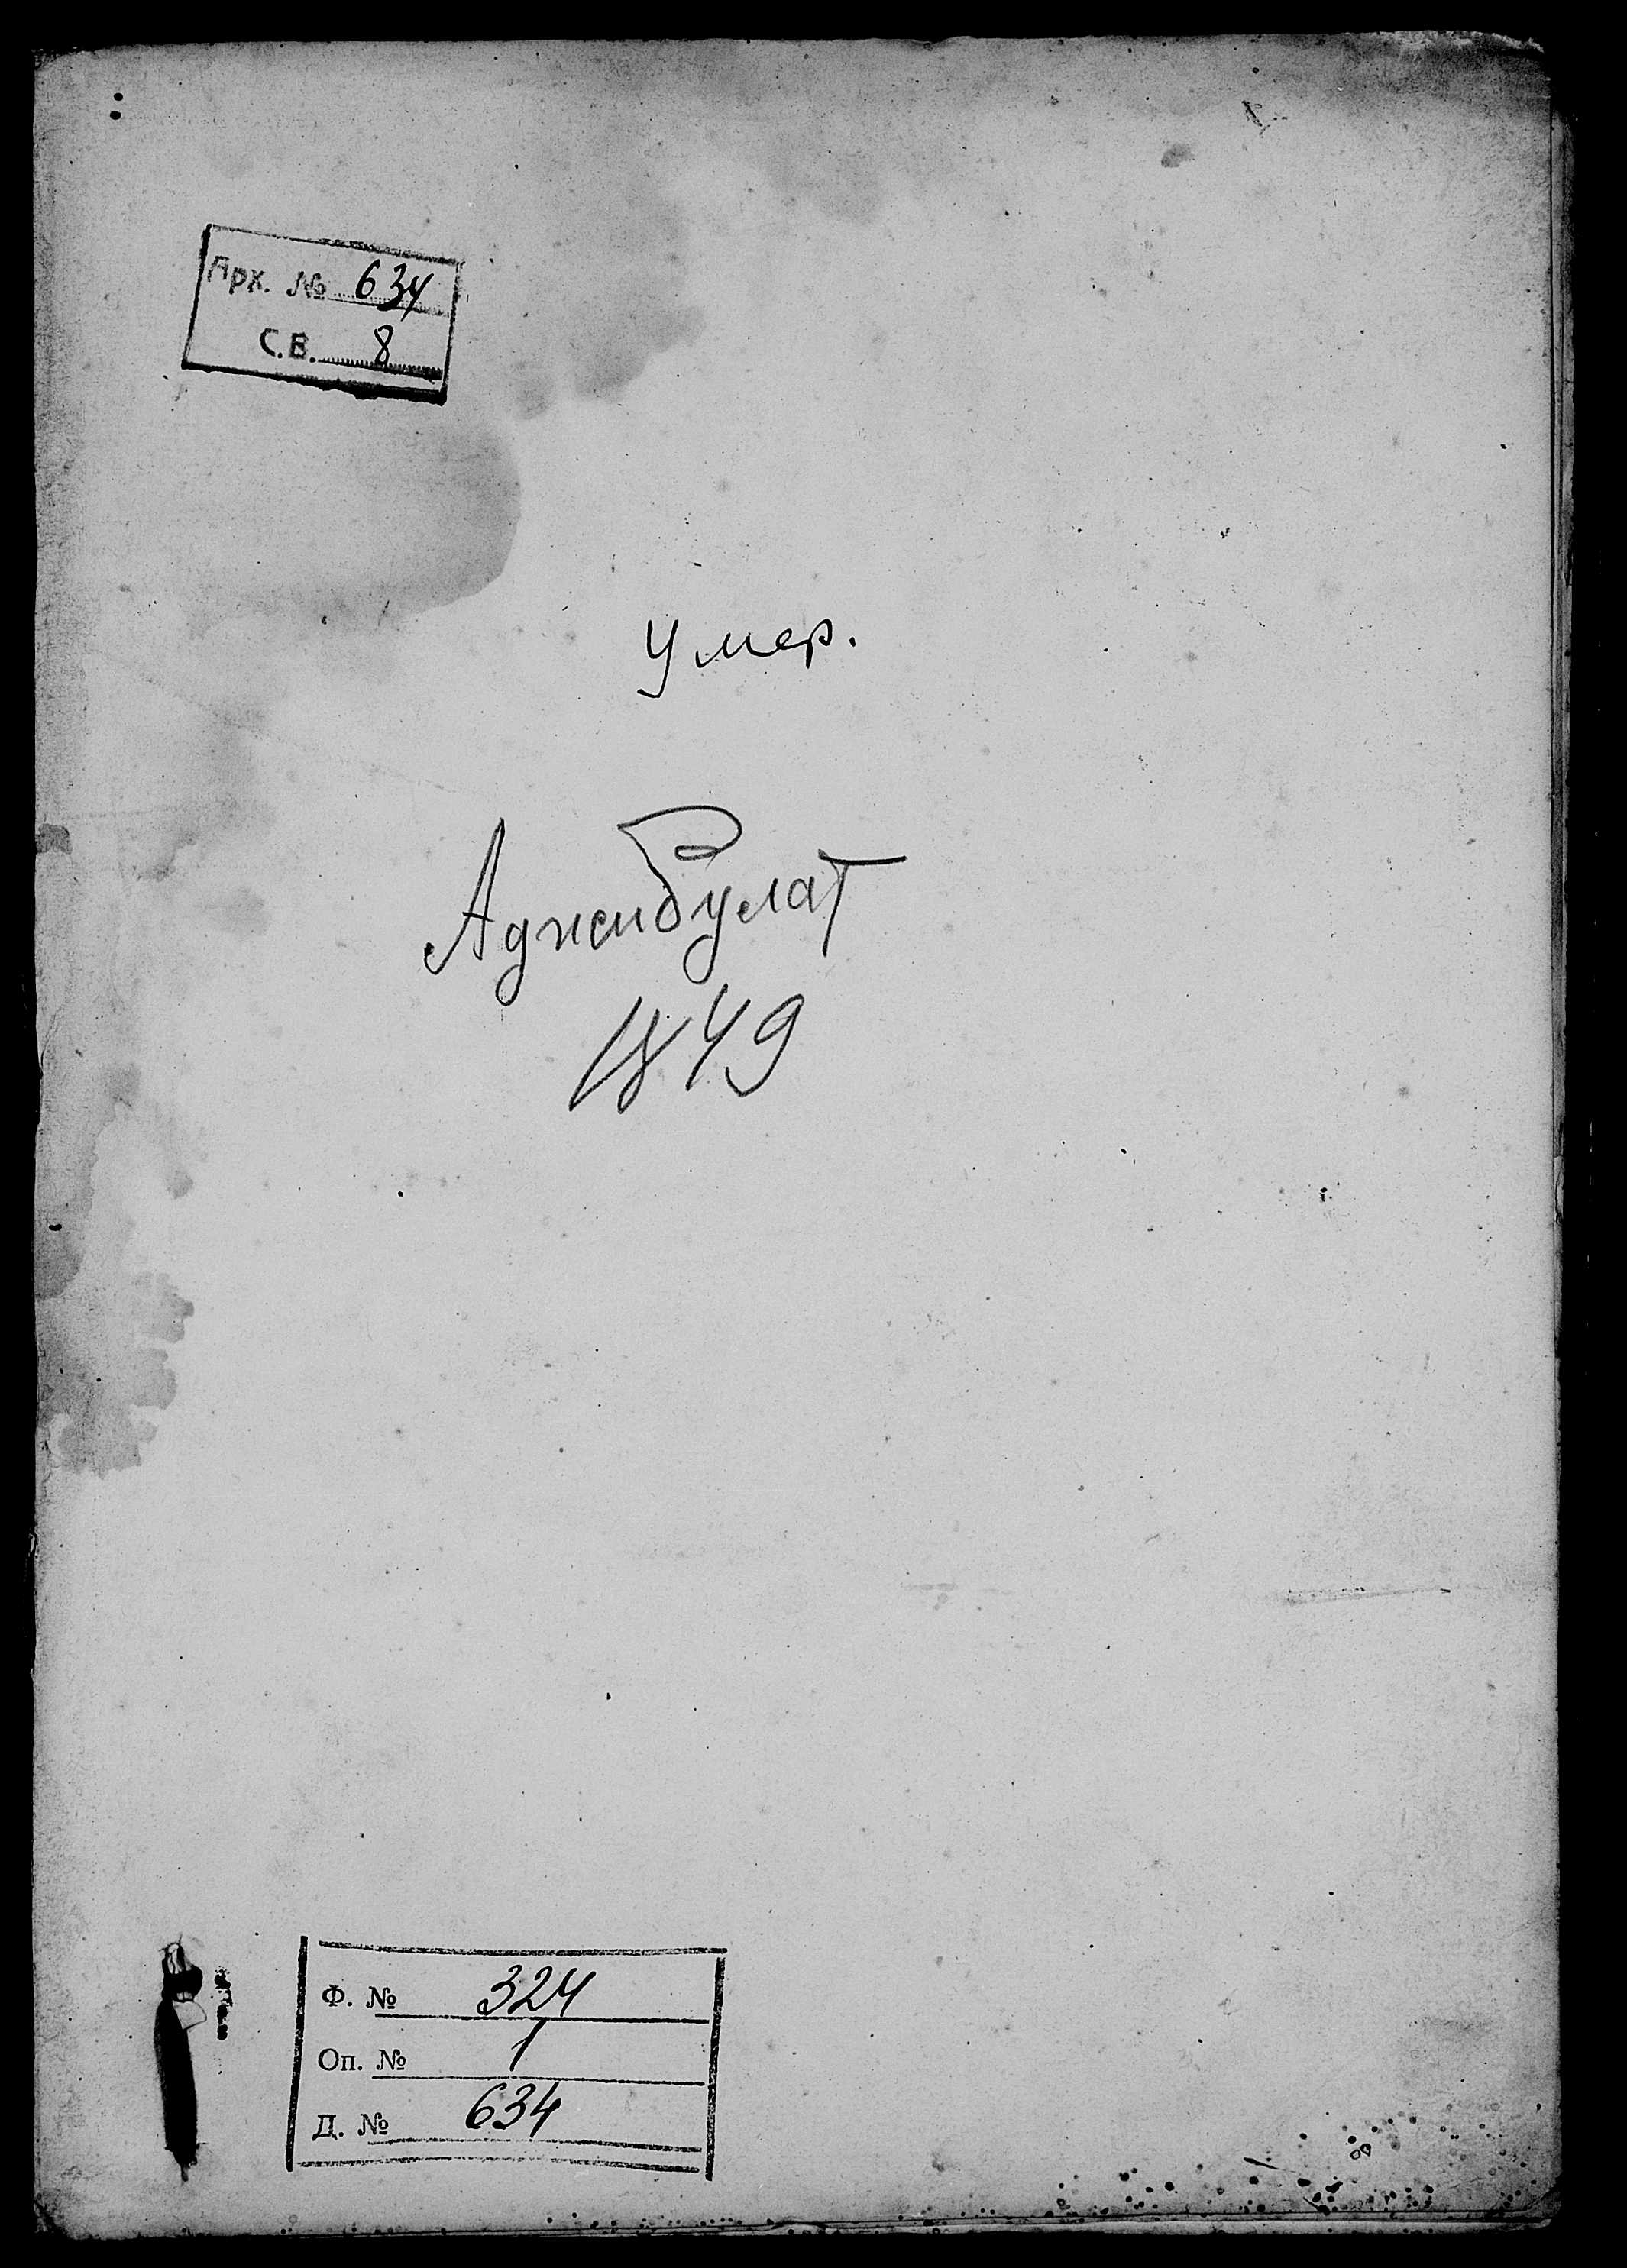 Арх. № 634
С.В. 8
Умер.
Аджибулат
1849
Ф. № 324
Оп. № 1
Д. № 634